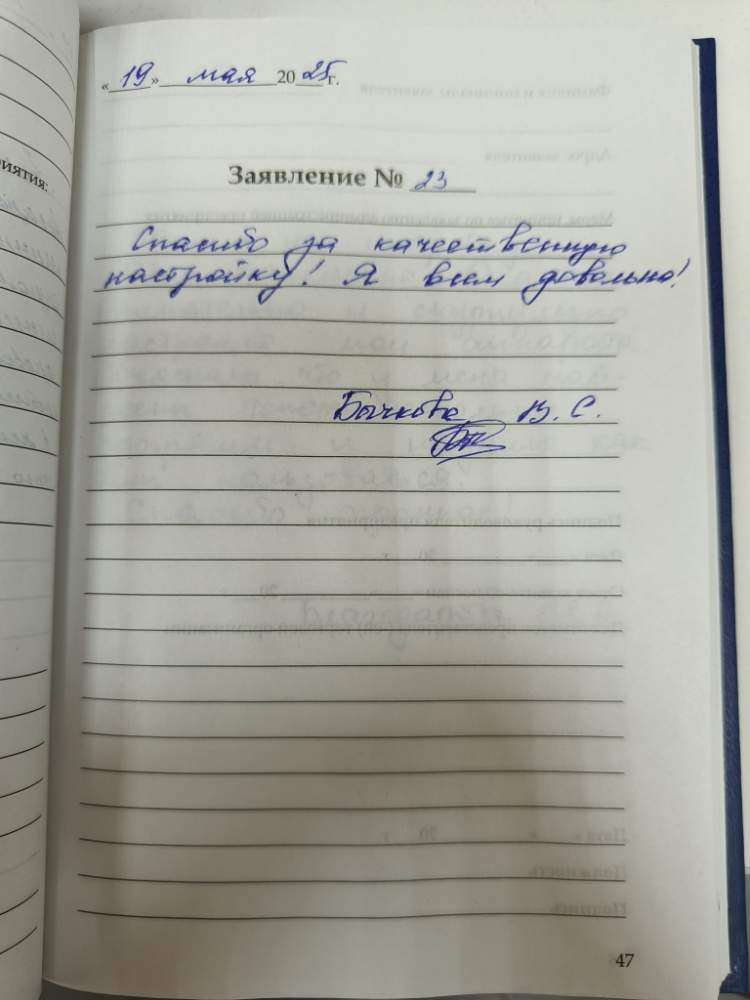 «19» мая 2025 г.
Заявление № 23
Спасибо за качественную
настройку! Я всем довольна!
Бычкова В. С.
47
иятия: